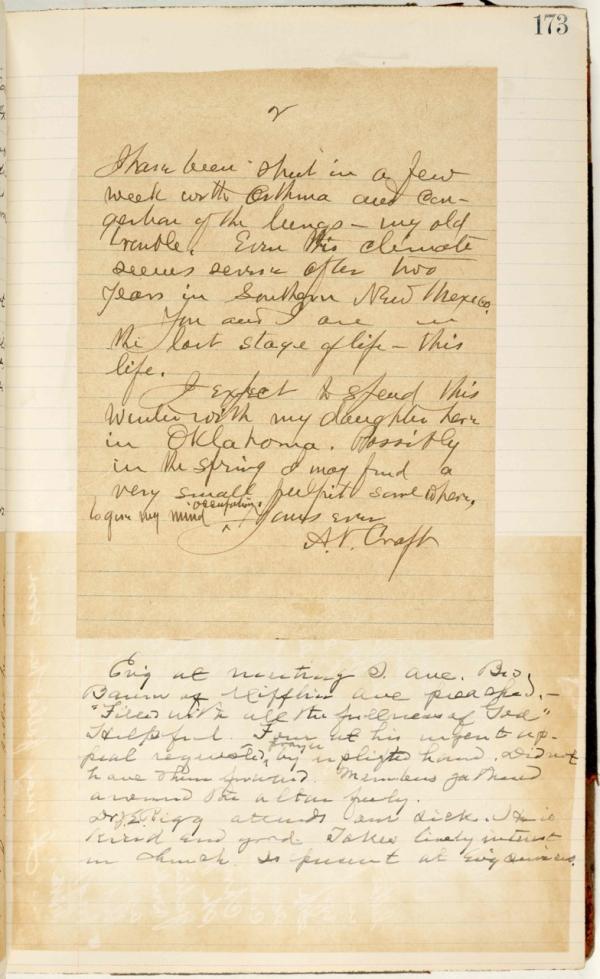 173
2
I have been shut in a few
week with Asthma and con-
gestion of the lungs – my old
trouble. Even this climate
seems severe after two
years in Southern New Mexico.
You and I are in
the last stage of life – this
life.
I expect to spend this
Winter with my daughter here
in Oklahoma. Possibly
in the spring I may find a
very small pulpit somewhere,
to give my mind occupation.
Yours ever
A. V. Craft
Ev'g at meeting S. ave. Bro.
of Mifflin ave preached. –
"Filled with all the fullness of God"
Helpful. Four at his urgent ap-
peal requested prayer, by uplifted hand. Did not
have them forward. Members gathered
around the altar freely.
Dr. J. E. Pigg attends our sick. He is
kind and good. Takes lively interest
in church. Is present at Ev'g services.